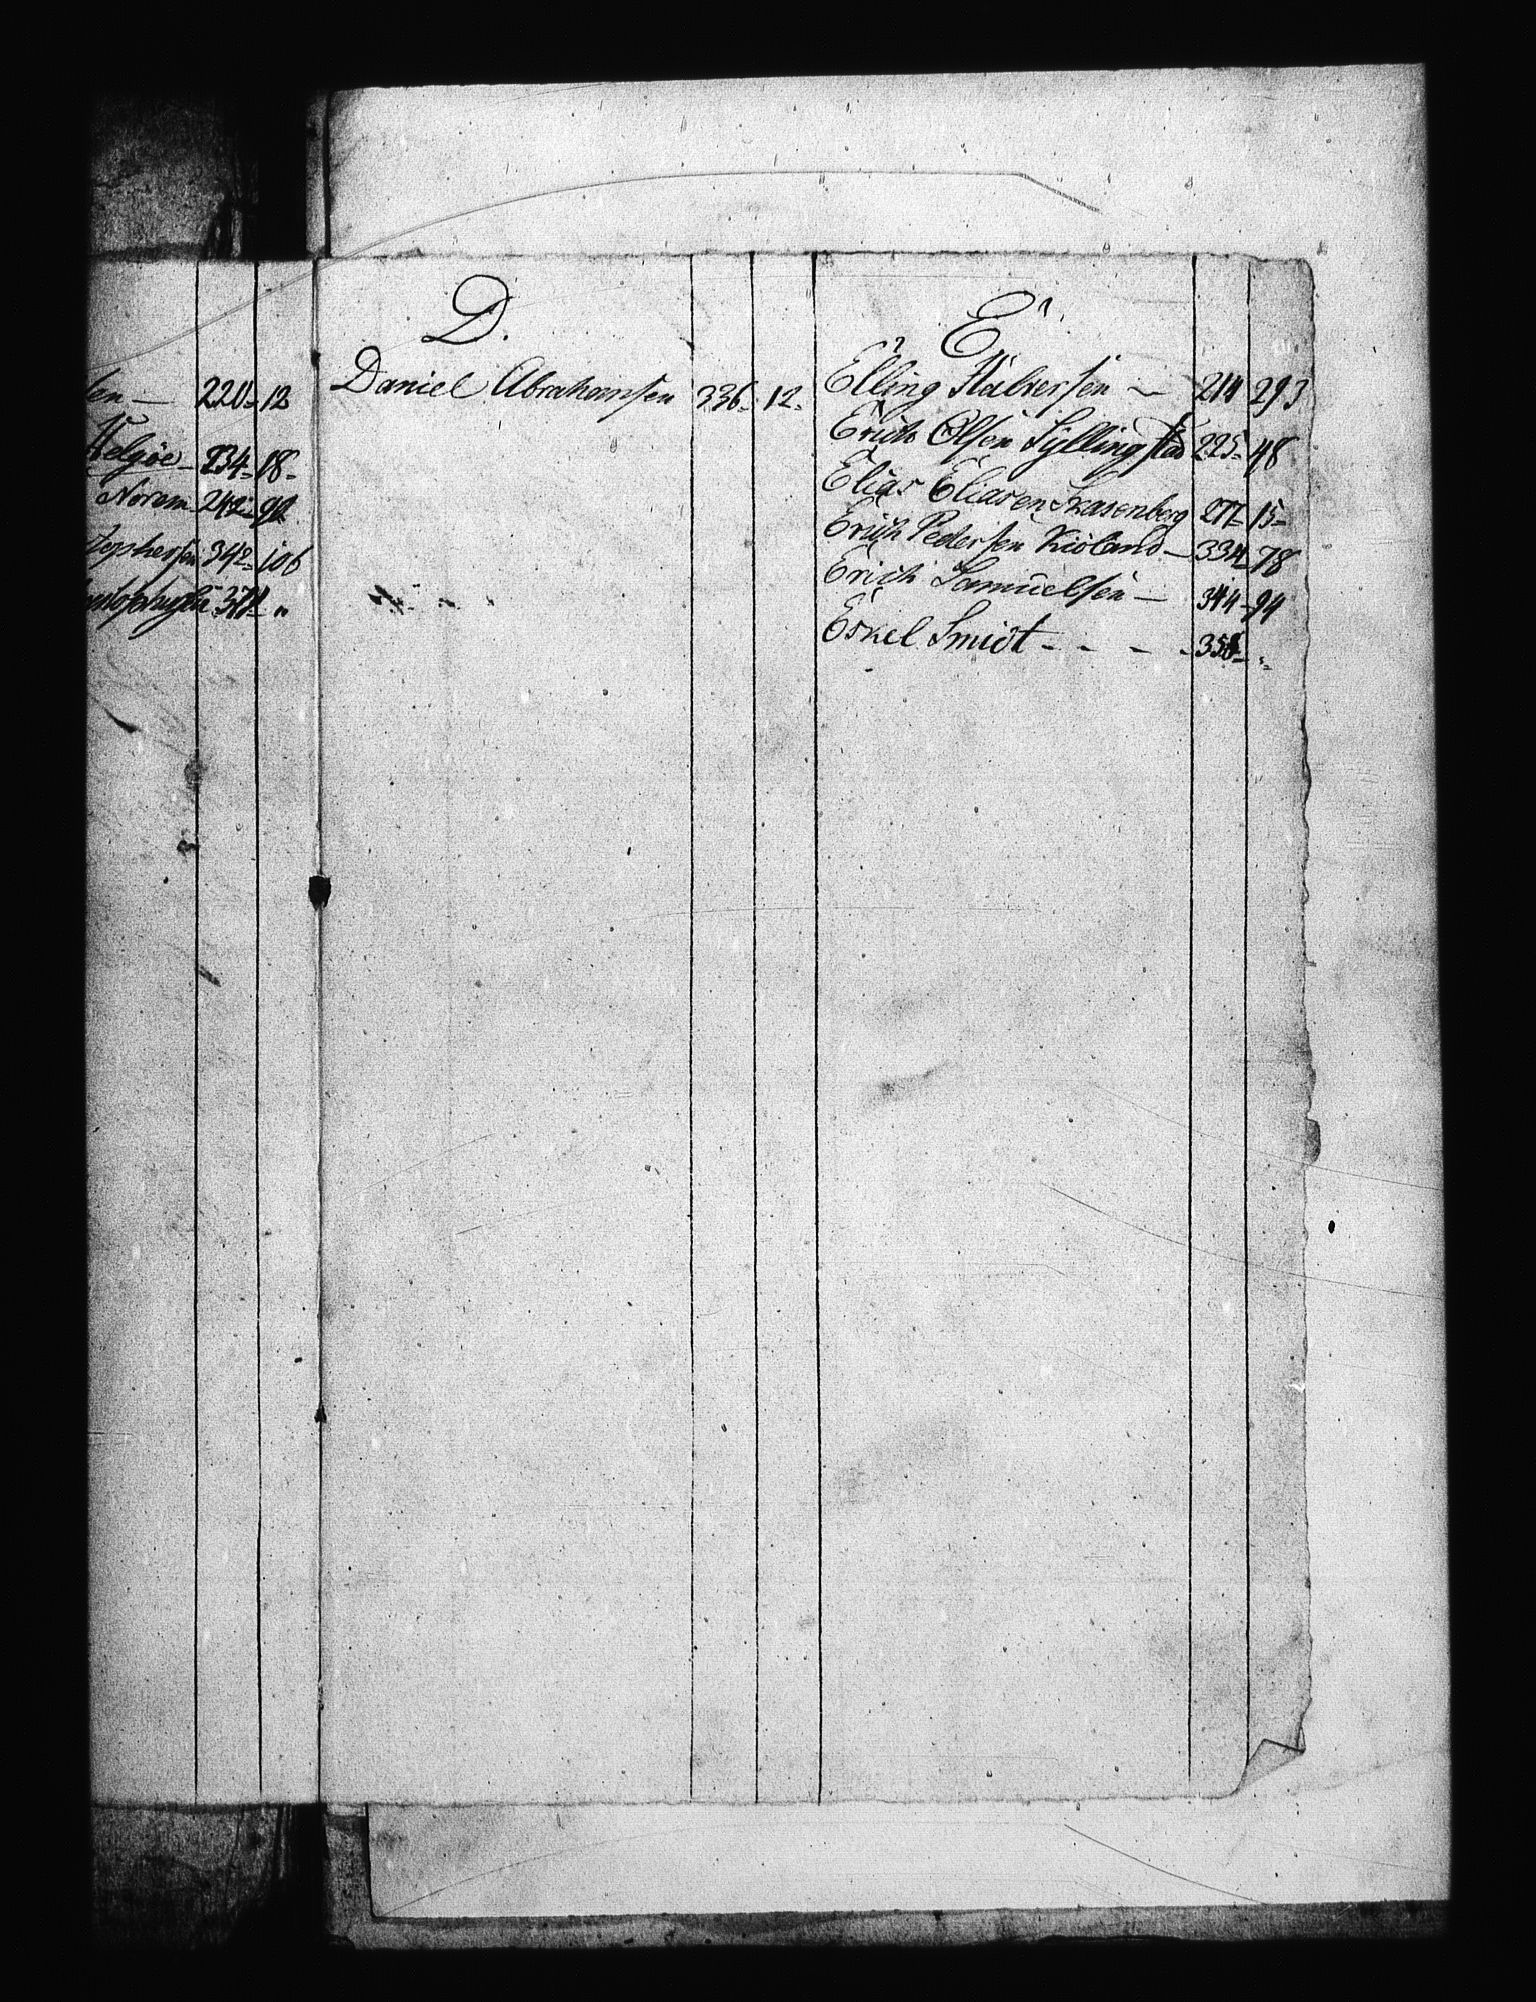 sen — 220 - 12
Helgöe - 234 - 18 -
Norem - 242 - 92
tophersen 342 - 106
378 - "
D.
Daniel Abrahamsen 336 - 12 -
E
Elling Halversen — 214 293
Erich Olsen Gjllingstad 225 - 48
Elias Eliasen Skasenberg 277 - 15 -
Erich Pedersen Kiöland — 334 - 78
Erich Samuelsen — 344 - 94
Eskel Smidt - - - - 358 - "